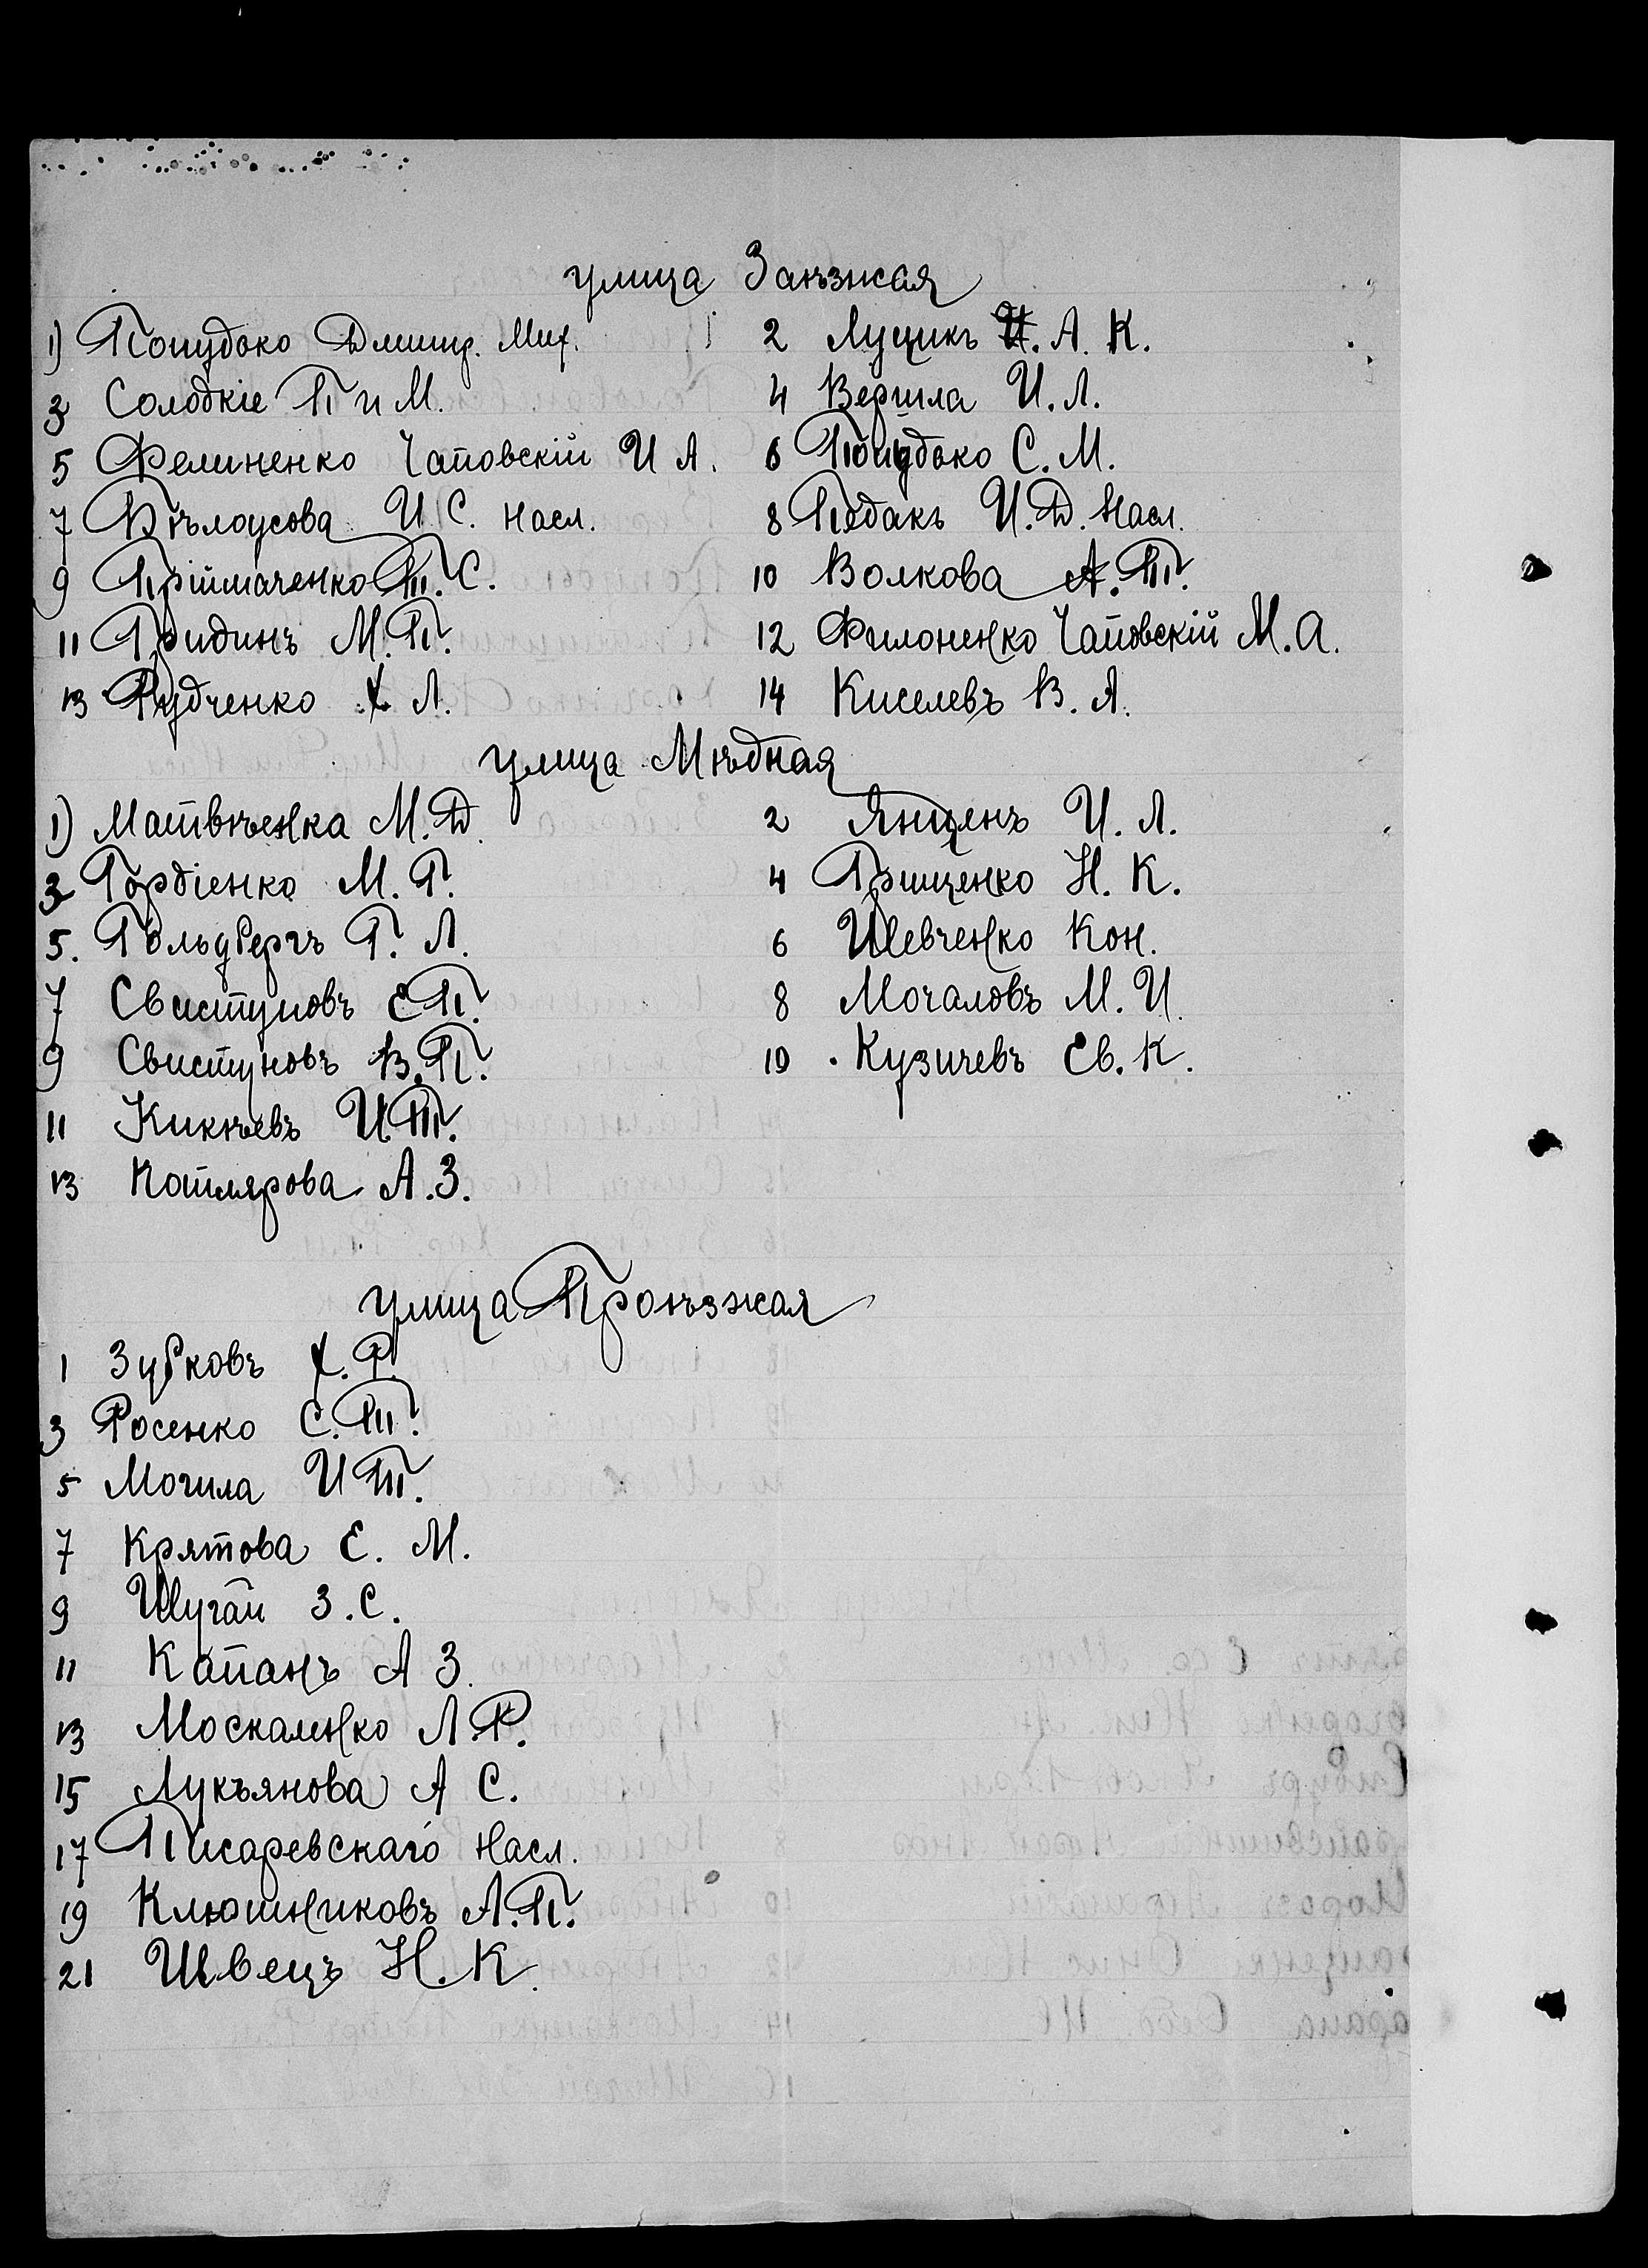 улица Заѣзжая
1) Попудько Дмитр. Мих. 2 Луцикъ А. К.
3 Солодкіе П и М. 4 Вершла И. Л.
5 Фелиненко Чаповскій И А. 6 Попудько С. М.
7 Бѣлоусова И С. насл. 8 Педакъ И. Д. Насл.
9 Пріймаченко Т. С. 10 Волкова А. Т.
11 Гридинъ М. П. 12 Филоненко Чаповскій М. А.
13 Рудченко Х Л. 14 Киселевъ В. Я.
улица Мѣдная
1) Матвѣенка М. Д. 2 Янценъ И. Л.
3 Гордіенко М. Г. 4 Грищенко Н. К.
5. Гольдбергъ Г. Л. 6 Шевченко Кон.
7 Свистуновъ Е П. 8 Мочаловъ М. И
9 Свистуновъ В. П. 10 Кузичевъ Ев. К.
11 Кикѣевъ И. Т.
13 Котлярова А. З.
улица Проѣзжая
1 Зубковъ Х. Р.
3 Росенко С. Т.
5 Могила И Т.
7 Крятова Е. М.
9 Шугай З. С.
11 Капанъ А З.
13 Москаленко Л. Р.
15 Лукъянова А С.
17 Писаревскаго Насл.
19 Клюшниковъ А. П.
21 Швецъ Н. К.